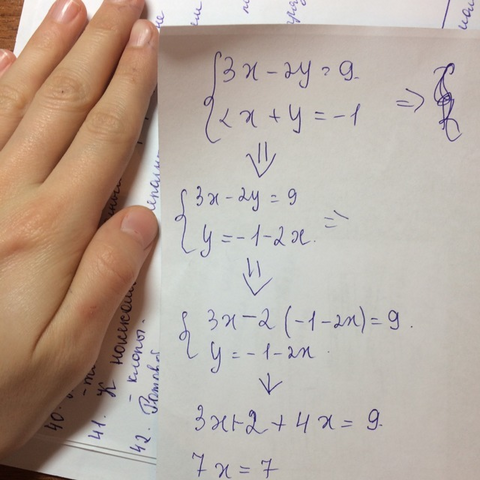 {3x-2y=9
2x+y=-1 =>
{3x-2y=9 =>
y=-1-2x.
{3x-2(-1-2x)=9.
y=-1-2x.
3x+2+4x=9.
7x=7
40.
41. К
- клопы.
42.